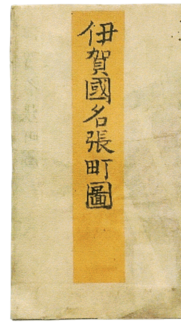 伊賀國名張町圖